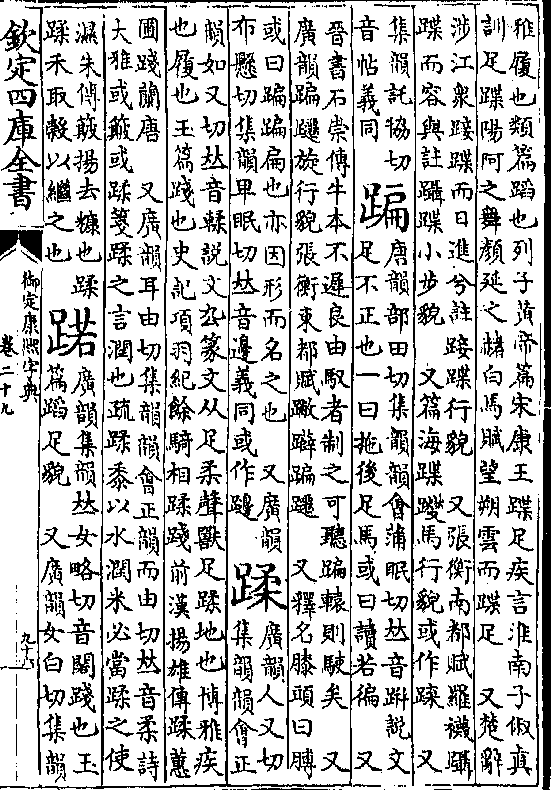 雅履也類篇蹈也列子黃帝篇宋康王蹀足疾言淮南子俶真
訓足蹀陽阿之舞顏延之赭白馬賦望朔雲而蹀足 又楚辭
涉江衆踥蹀而日進兮註踥蹀行貌 又張衡南都賦羅襪躡
蹀而容與註躡蹀小步貌 又篇海蹀馬行貌或作 又
集韻託協切
音帖義同
蹁
唐韻部田切集韻韻會蒲眠切𠀤音跰說文
足不正也一曰拖後足馬或曰讀若徧 又
晉書石崇傳牛本不遲良由馭者制之可聽蹁轅則駛矣 又
廣韻蹁躚旋行貌張衡東都賦躃蹁躚 又釋名膝頭曰膊
或曰蹁蹁扁也亦因形而名之也 又廣韻
布懸切集韻卑眠切𠀤音邊義同或作
蹂
廣韻人又切
集韻韻會正
韻如又切𠀤音輮說文厹篆文从足柔聲獸足蹂地也博雅疾
也履也玉篇踐也史記項羽紀餘騎相蹂踐前漢揚雄傳蹂蕙
圃踐蘭唐 又廣韻耳由切集韻韻會正韻而由切𠀤音柔詩
大雅或簸或蹂箋蹂之言潤也疏蹂黍以水潤米必當蹂之使
濕朱傳簸揚去糠也蹂
蹂禾取穀以繼之也
蹃
廣韻集韻𠀤女略切音踐也玉
篇蹈足貌 又廣韻女白切集韻
欽定四庫全書
御定康熙字典
卷二十九
九十六